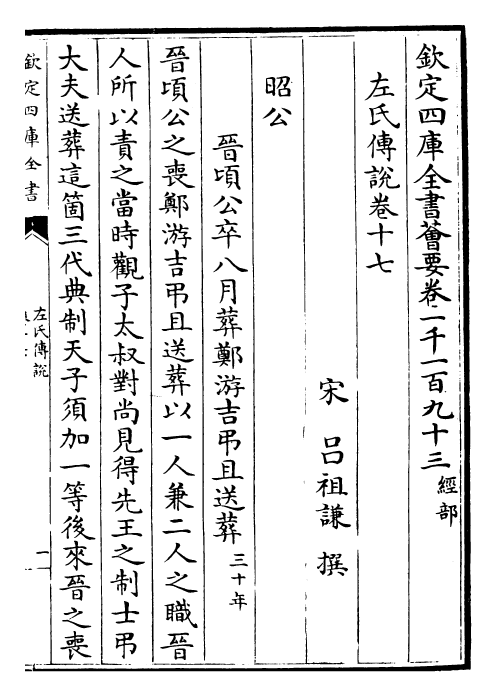 欽定四庫全書薈要卷一千一百九十三經部
左氏傳說卷十七
宋 呂祖謙 撰
昭公
晉頃公卒八月葬鄭游吉弔且送葬三十年
晉頃公之喪鄭游吉弔且送葬以一人兼二人之職晉
人所以責之當時觀子太叔對尚見得先王之制士弔
大夫送葬這箇三代典制天子須加一等後來晉之喪
欽定四庫全書
左氏傳說